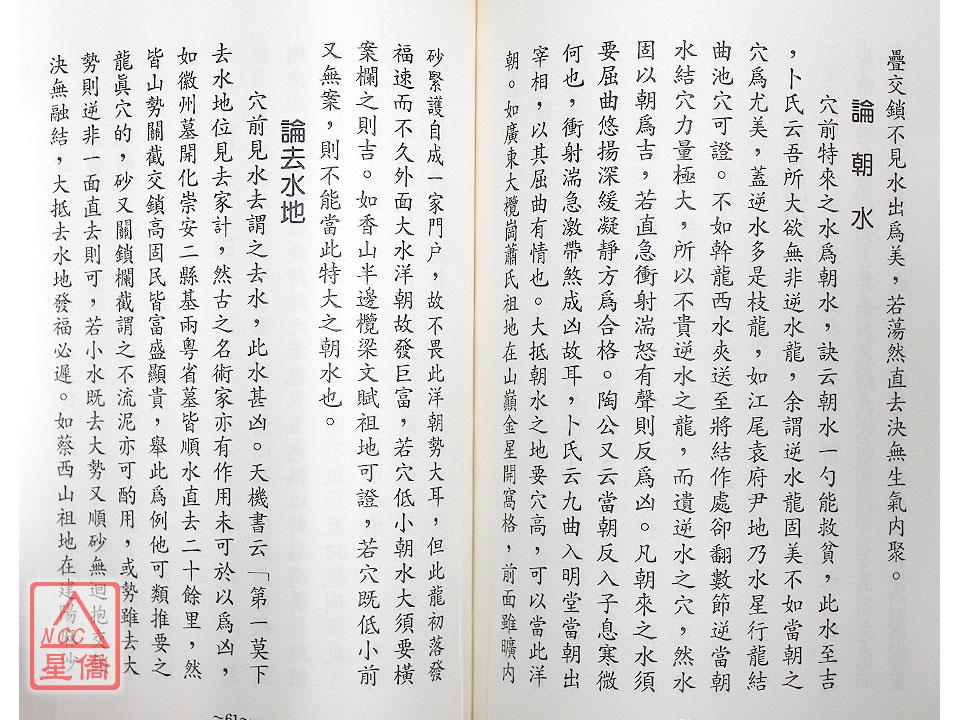 疊交鎖不見水出爲美，若蕩然直去決無生氣內聚。
論朝水
穴前特來之水爲朝水，訣云朝水一勺能救貧，此水至吉
，卜氏云吾所大欲無非逆水龍，余謂逆水龍固美不如當朝之
穴爲尤美，蓋逆水多是枝龍，如江尾袁府尹地乃水星行龍結
曲池穴可證。不如幹龍西水夾送至將結作處卻翻數節逆當朝
水結穴力量極大，所以不貴逆水之龍，而遺逆水之穴，然水
固以朝爲吉，若直急衝射湍怒有聲則反爲凶。凡朝來之水須
要屈曲悠揚深緩凝靜方爲合格。陶公又云當朝反入子息寒微
何也，衝射湍急激帶煞成凶故耳，卜氏云九曲入明堂當朝出
宰相，以其屈曲有情也。大抵朝水之地要穴高，可以當此洋
朝。如廣東大欖崗蕭氏祖地在山巔金星開窩格，前面雖曠內
砂緊護自成一家門户，故不畏此洋朝勢大耳，但此龍初落發
福速而不久外面大水洋朝故發巨富，若穴低小朝水大須要橫
案欄之則吉。如香山半邊欖梁文賦祖地可證，若穴既低小前
又無案，則不能當此特大之朝水也。
論去水地
穴前見水去謂之去水，此水甚凶。天機書云「第一莫下
去水地位見去家計，然古之名術家亦有作用未可於以爲凶，
如徽州墓開化崇安二縣基兩粵省墓皆順水直去二十餘里，然
皆山勢關截交鎖高固民皆富盛顯貴，舉此爲例他可類推要之
龍眞穴的，砂又關鎖欄截謂之不流泥亦可酌用，或勢雖去大
勢則逆非一面直去則可，若小水既去大勢又順砂無迴抱交
決無融結，大抵去水地發福必遲。如蔡西山祖地在建陽
~61~
NCC
星僑